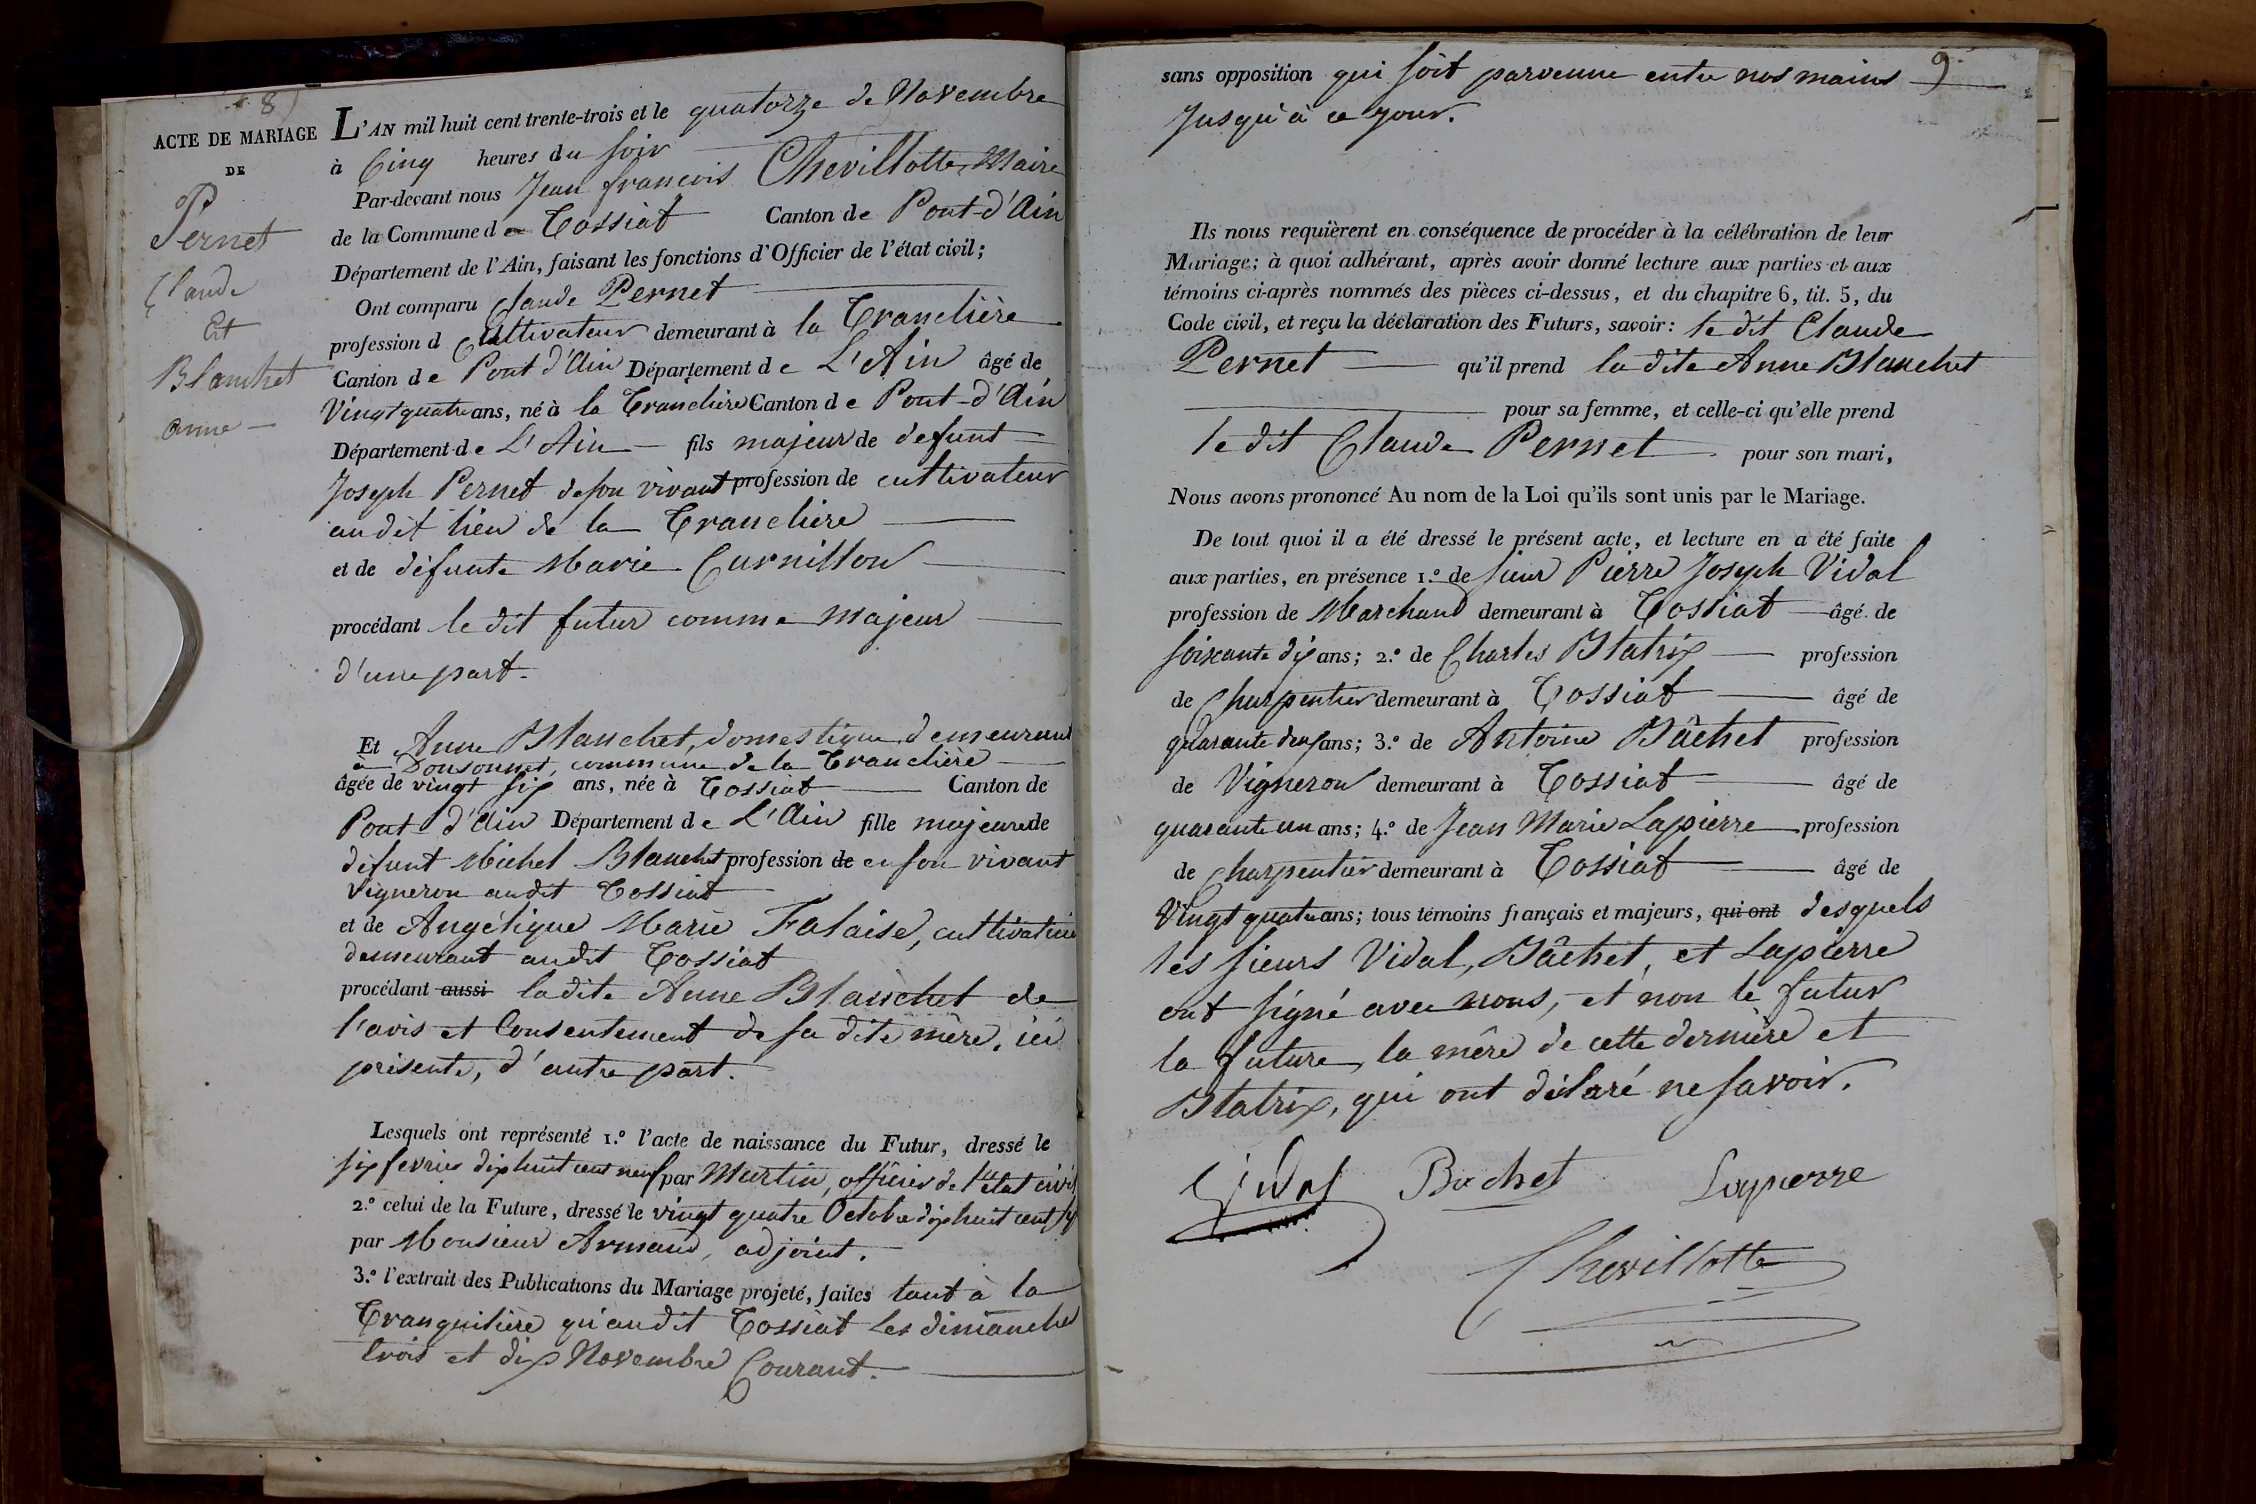 8
ACTE DE MARIAGE
DE
Pernet
Claude
Et
Blanchet
anne
L'AN mil huit cent trente-trois et le quatorze de Novembre
à Cinq heures du soir
Par-devant nous Jean françois Chevillotte, Maire
de la Commune de Tossiat Canton de Pont-d'Ain
Département de l'Ain, faisant les fonctions d'Officier de l'état civil;
Ont comparu Claude Pernet
profession d Cultivateur demeurant à la Tranclière
Canton de Pont d'Ain Département de L'Ain âgé de
Vingt quatre ans, né à la Tranclière Canton de Pont-d'Ain
Département de L'Ain fils majeur de defunt
Joseph Pernet de son vivant profession de cultivateur
au dit lieu de la Tranclière
et de défunte Marie Curnillon
procédant le dit futur comme majeur
d'une part.
Et Anne Blanchet, domestique demeurant
à Dousonnet, commune de la Tranclière
âgée de vingt six ans, née à Tossiat Canton de
Pont d'Ain Département de L'Ain fille majeure de
défunt Michel Blanchet profession de en son vivant
Vigneron audit Tossiat
et de Angélique Marie Falaise, cultivatrice
demeurant audit Tossiat
procédant aussi ladite Anne Blanchet de
l'avis et Consentement de sa dite mère, ici
présente, d'autre part.
Lesquels ont représenté 1.º l'acte de naissance du Futur, dressé le
six fevrier dix huit cent neuf par Martin, officier de l'état civil
2.º celui de la Future, dressé le vingt quatre Octobre dix huit cent six
par Monsieur Armand, adjoint.
3.º l'extrait des Publications du Mariage projeté, faites tant à la
Tranquilière qu'audit Tossiat Les dimanches
trois et dix Novembre Courant.
9
sans opposition qui soit parvenue entre nos mains
Jusqu'à ce jour.
Ils nous requièrent en conséquence de procéder à la célébration de leur
Mariage; à quoi adhérant, après avoir donné lecture aux parties et aux
témoins ci-après nommés des pièces ci-dessus, et du chapitre 6, tit. 5, du
Code civil, et reçu la déclaration des Futurs, savoir: le dit Claude
Pernet qu'il prend la dite Anne Blanchet
pour sa femme, et celle-ci qu'elle prend
le dit Claude Pernet pour son mari,
Nous avons prononcé Au nom de la Loi qu'ils sont unis par le Mariage.
De tout quoi il a été dressé le présent acte, et lecture en a été faite
aux parties, en présence 1.º de sieur Pierre Joseph Vidal
profession de Marchand demeurant à Tossiat âgé de
soixante dix ans; 2.º de Charles Blatrix profession
de Charpentier demeurant à Tossiat âgé de
quarante deux ans; 3.º de Antoine Bâchet profession
de Vigneron demeurant à Tossiat âgé de
quarante un ans; 4.º de Jean Marie Lapierre profession
de Charpentier demeurant à Tossiat âgé de
Vingt quatre ans; tous témoins français et majeurs, qui ont desquels
les sieurs Vidal, Bâchet, et Lapierre
ont signé avec nous, et non le futur
la future, la mère de cette dernière et
Blatrix, qui ont déclaré ne savoir.
Vidal Bachet Lapierre
Chevillotte